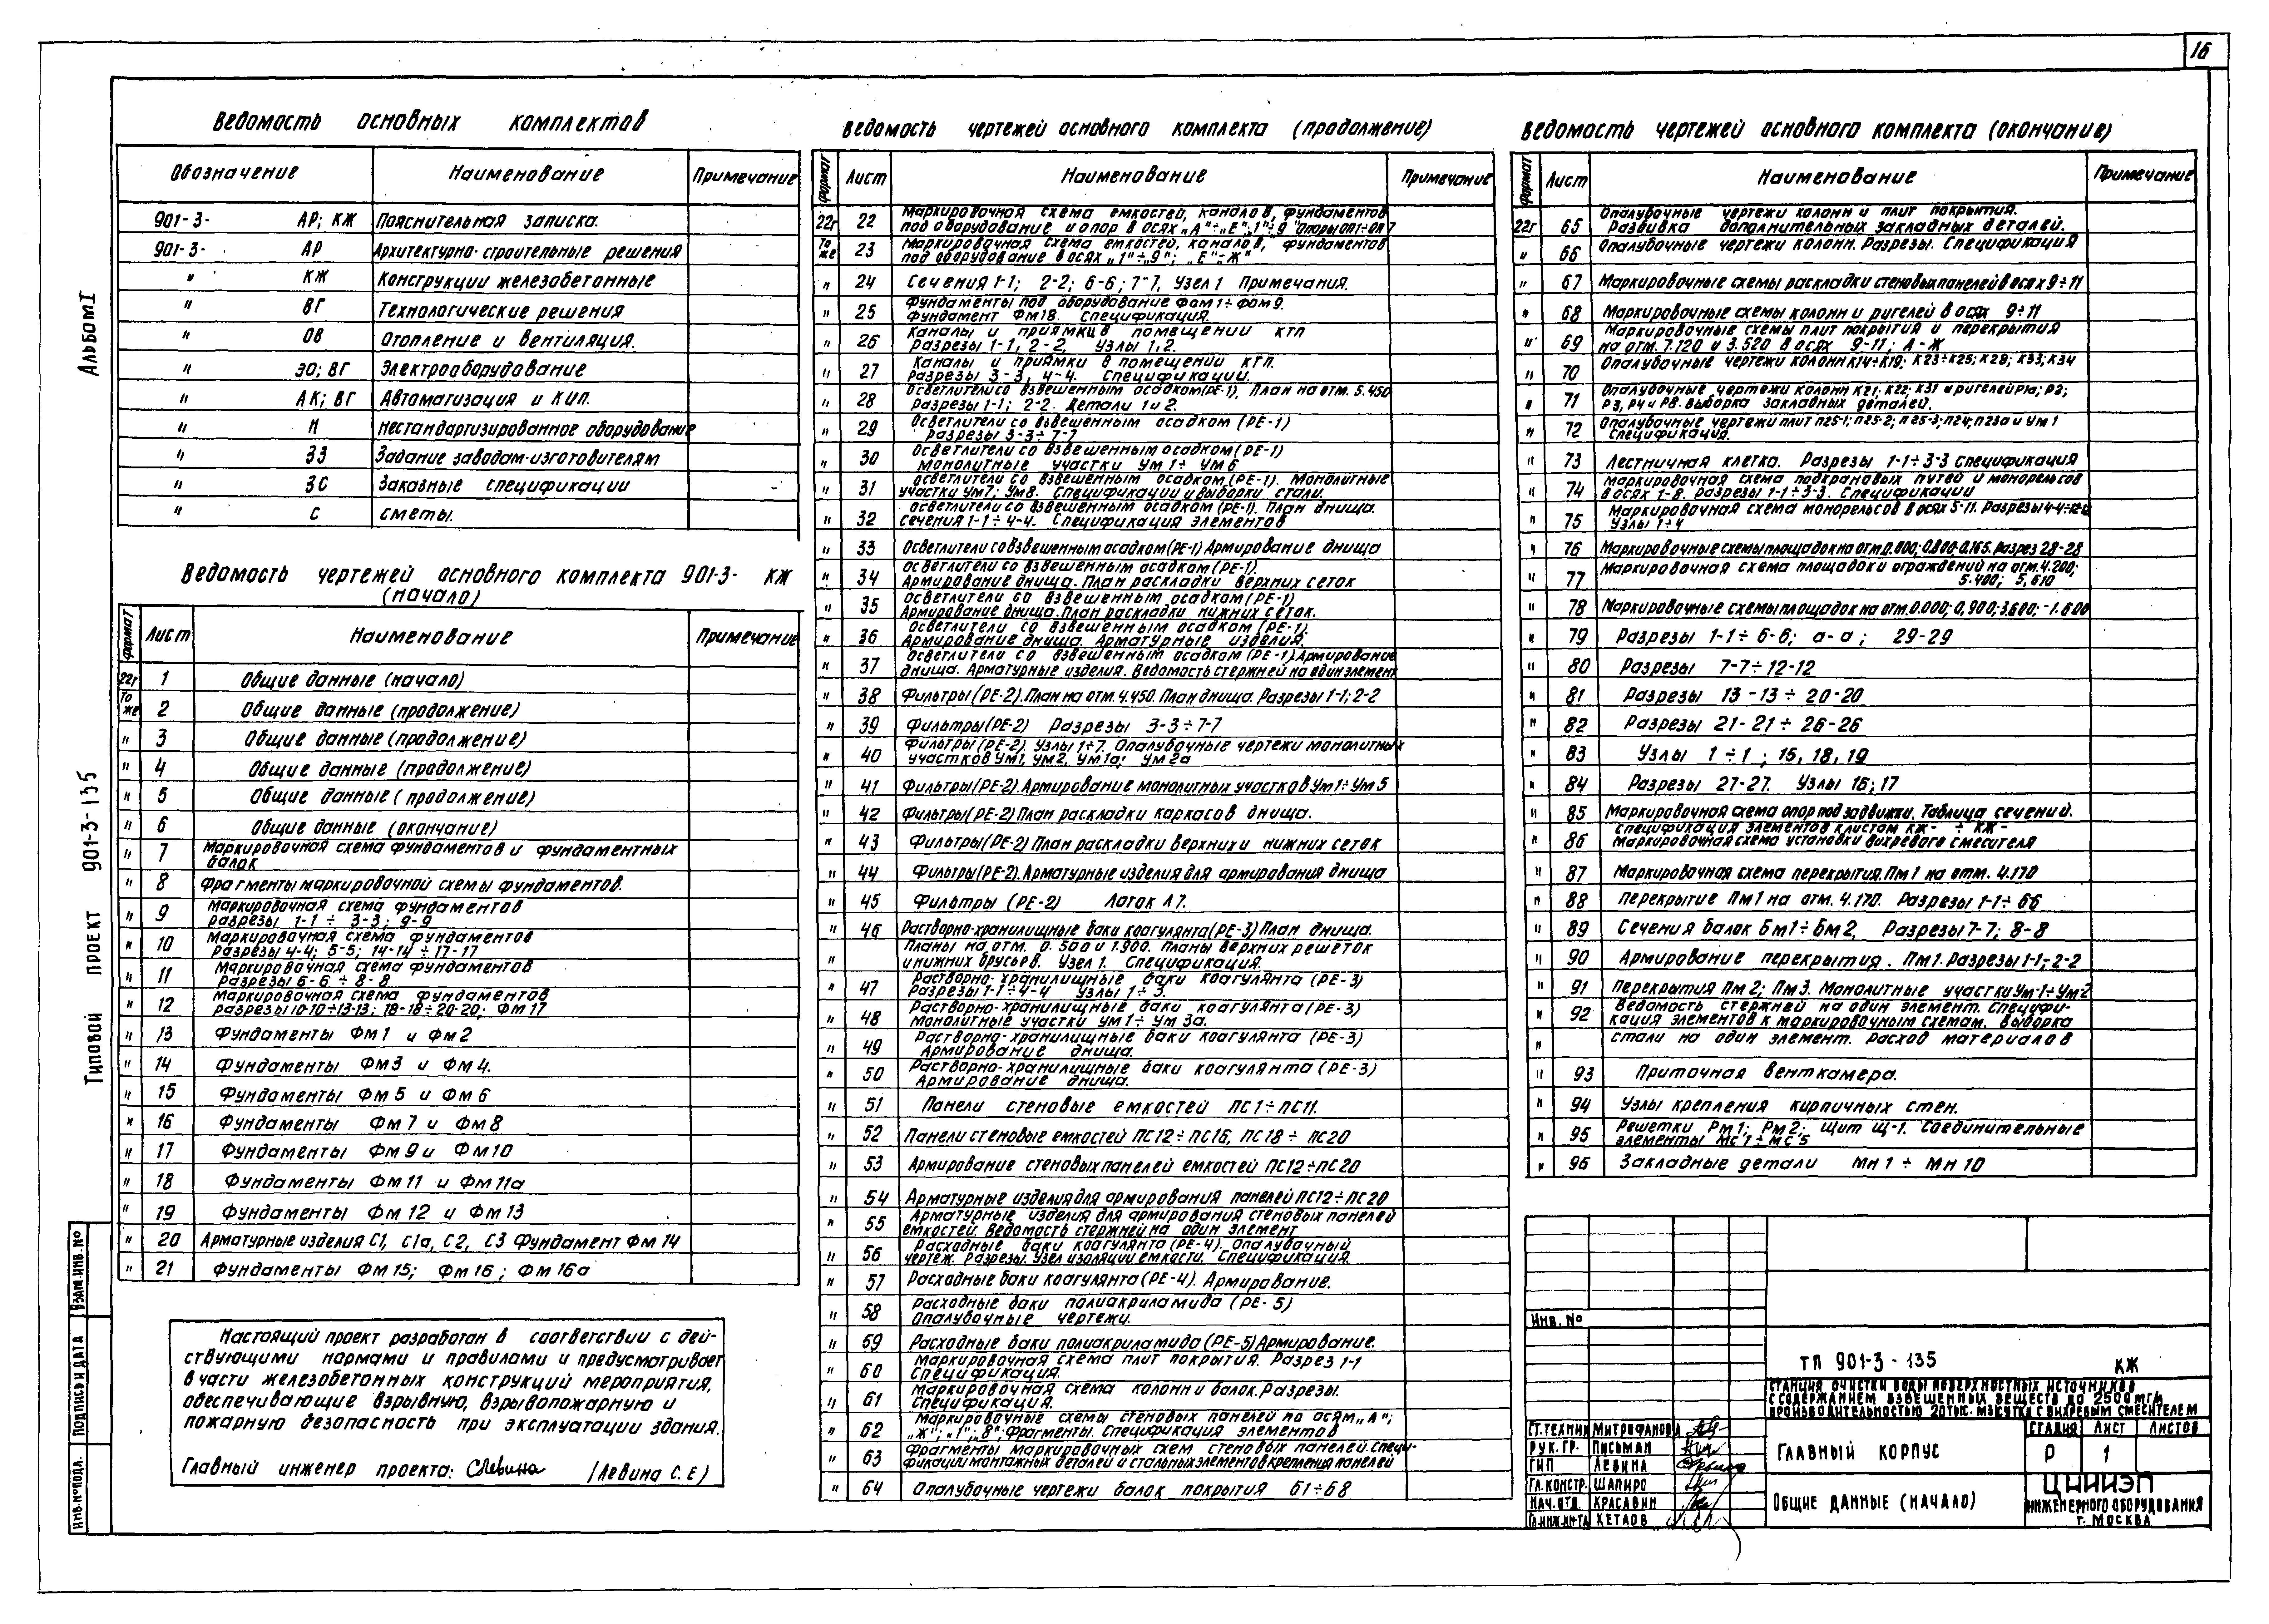 16
Альбом I
Типовой проект 901-3-135
Взам.инв.№
Подпись и дата
Инв.№подл.
Ведомость основных комплектов
Обозначение Наименование Примечание
901-3- АР; КЖ Пояснительная записка.
901-3- АР Архитектурно-строительные решения
" КЖ Конструкции железобетонные
" ВГ Технологические решения
" ОВ Отопление и вентиляция.
" ЭО; ВГ Электрооборудование
" АК; ВГ Автоматизация и КИП.
" Н Нестандартизированное оборудование
" ЗЗ Задание заводам-изготовителям
" ЗС Заказные спецификации
" С Сметы.
Ведомость чертежей основного комплекта 901-3- КЖ
(начало)
Формат Лист Наименование Примечание
22г 1 Общие данные (начало)
То же 2 Общие данные (продолжение)
" 3 Общие данные (продолжение)
" 4 Общие данные (продолжение)
" 5 Общие данные (продолжение)
" 6 Общие данные (окончание)
" 7 Маркировочная схема фундаментов и фундаментных
балок
" 8 Фрагменты маркировочной схемы фундаментов.
" 9 Маркировочная схема фундаментов
Разрезы 1-1 ÷ 3-3; 9-9
" 10 Маркировочная схема фундаментов
Разрезы 4-4; 5-5; 14-14 ÷ 17-17
" 11 Маркировочная схема фундаментов
Разрезы 6-6 ÷ 8-8
" 12 Маркировочная схема фундаментов
Разрезы 10-10÷13-13; 18-18÷20-20; Фм 17
" 13 Фундаменты Фм 1 и Фм 2
" 14 Фундаменты Фм3 и Фм 4.
" 15 Фундаменты Фм 5 и Фм 6
" 16 Фундаменты Фм 7 и Фм 8
" 17 Фундаменты Фм 9 и Фм 10
" 18 Фундаменты Фм 11 и Фм 11а
" 19 Фундаменты Фм 12 и Фм 13
" 20 Арматурные изделия С1, С1а, С2, С3 Фундамент Фм 14
" 21 Фундаменты Фм 15; Фм 16; Фм 16а
Настоящий проект разработан в соответствии с дей-
ствующими нормами и правилами и предусматривает
в части железобетонных конструкций мероприятия,
обеспечивающие взрывную, взрывопожарную и
пожарную безопасность при эксплуатации здания.
Главный инженер проекта: (Левина С.Е)
Ведомость чертежей основного комплекта (продолжение)
Формат Лист Наименование Примечание
22г 22 Маркировочная схема емкостей, каналов, фундаментов
под оборудование и опор в осях „А"÷„Е"; „1"÷„9" Опоры ОП1÷ОП7
То же 23 Маркировочная схема емкостей, каналов, фундаментов
под оборудование в осях „1"÷„9"; „Е"÷„Ж"
" 24 Сечения 1-1; 2-2; 6-6; 7-7, Узел 1 Примечания.
" 25 Фундаменты под оборудование Фом 1÷Фом 9.
Фундамент Фм18. Спецификация.
" 26 Каналы и приямки в помещении КТП
Разрезы 1-1, 2-2, Узлы 1, 2.
" 27 Каналы и приямки в помещении КТП.
Разрезы 3-3, 4-4. Спецификации.
" 28 Осветлители со взвешенным осадком (РЕ-1), План на отм. 5.450
Разрезы 1-1; 2-2. Детали 1 и 2.
" 29 Осветлители со взвешенным осадком (РЕ-1)
разрезы 3-3÷7-7
" 30 Осветлители со взвешенным осадком (РЕ-1)
Монолитные участки Ум 1÷ Ум 6
" 31 Осветлители со взвешенным осадком (РЕ-1). Монолитные
участки Ум7; Ум8. Спецификации и выборки стали.
" 32 Осветлители со взвешенным осадком (РЕ-1). План днища.
Сечения 1-1÷4-4. Спецификация элементов
" 33 Осветлители со взвешенным осадком (РЕ-1) Армирование днища
" 34 Осветлители со взвешенным осадком (РЕ-1).
Армирование днища. План раскладки верхних сеток
" 35 Осветлители со взвешенным осадком (РЕ-1)
Армирование днища. План раскладки нижних сеток.
" 36 Осветлители со взвешенным осадком (РЕ-1).
Армирование днища. Арматурные изделия.
" 37 Осветлители со взвешенным осадком (РЕ-1) Армирование
днища. Арматурные изделия. Ведомость стержней на один элемент
" 38 Фильтры (РЕ-2). План на отм. 4.450. План днища. Разрезы 1-1; 2-2
" 39 Фильтры (РЕ-2) Разрезы 3-3÷7-7
" 40 Фильтры (РЕ-2) Узлы 1÷7. Опалубочные чертежи монолитных
участков Ум1, Ум2, Ум1а; Ум2а
" 41 Фильтры (РЕ-2). Армирование монолитных участков Ум1÷Ум 5
" 42 Фильтры (РЕ-2) План раскладки каркасов днища.
" 43 Фильтры (РЕ-2) План раскладки верхних и нижних сеток
" 44 Фильтры (РЕ-2). Арматурные изделия для армирования днища
" 45 Фильтры (РЕ-2) Лоток Л 7.
" 46 Растворно-хранилищные баки коагулянта (РЕ-3) План днища.
" Планы на отм. 0.500 и 1.900. Планы верхних решеток
и нижних брусьев. Узел 1. Спецификация.
" 47 Растворно-хранилищные баки коагулянта (РЕ-3)
Разрезы 1-1÷4-4 Узлы 1÷3.
" 48 Растворно-хранилищные баки коагулянта (РЕ-3)
Монолитные участки Ум 1÷ Ум 3а.
" 49 Растворно-хранилищные баки коагулянта (РЕ-3)
Армирование днища.
" 50 Растворно-хранилищные баки коагулянта (РЕ-3)
Армирование днища.
" 51 Панели стеновые емкостей ПС 1÷ПС11.
" 52 Панели стеновые емкостей ПС12÷ПС16, ПС 18 ÷ ПС20
" 53 Армирование стеновых панелей емкостей ПС12÷ПС 20
" 54 Арматурные изделия для армирования панелей ПС12÷ПС 20
" 55 Арматурные изделия для армирования стеновых панелей
емкостей. Ведомость стержней на один элемент
" 56 Расходные баки коагулянта (РЕ-4). Опалубочный
чертеж. Разрезы. Узел изоляции емкости. Спецификация.
" 57 Расходные баки коагулянта (РЕ-4). Армирование.
" 58 Расходные баки полиакриламида (РЕ-5)
Опалубочные чертежи.
" 59 Расходные баки полиакриламида (РЕ-5) Армирование.
" 60 Маркировочная схема плит покрытия. Разрез 1-1
Спецификация.
" 61 Маркировочная схема колонн и балок. Разрезы.
Спецификация.
" 62 Маркировочные схемы стеновых панелей по осям „А";
„Ж"; „1"; „8"; Фрагменты. Спецификация элементов
" 63 Фрагменты маркировочных схем стеновых панелей. Специ-
фикации монтажных деталей и стальных элементов крепления панелей
" 64 Опалубочные чертежи балок покрытия Б1÷Б8
Ведомость чертежей основного комплекта (окончание)
Формат Лист Наименование Примечание
22г 65 Опалубочные чертежи колонн и плит покрытия.
Разбивка дополнительных закладных деталей.
" 66 Опалубочные чертежи колонн. Разрезы. Спецификация
" 67 Маркировочные схемы раскладки стеновых панелей в осях 9÷11
" 68 Маркировочные схемы колонн и ригелей в осях 9÷11
" 69 Маркировочные схемы плит покрытия и перекрытия
на отм. 7.120 и 3.520 в осях 9-11; А-Ж
" 70 Опалубочные чертежи колонн К14÷К19; К23÷К26; К28; К33; К34
" 71 Опалубочные чертежи колонн К21; К22; К31 и ригелей Р1а; Р2;
Р3, Р4 и Р8. Выборка закладных деталей.
" 72 Опалубочные чертежи плит П25-1; П25-2; П25-3; П24; П23а и Ум 1
Спецификация.
" 73 Лестничная клетка. Разрезы 1-1÷3-3 Спецификация
" 74 Маркировочная схема подкрановых путей и монорельсов
в осях 1-8. Разрезы 1-1÷3-3. Спецификации
" 75 Маркировочная схема монорельсов в осях 5-11. Разрезы 4-4÷12-12
Узлы 1÷4
" 76 Маркировочные схемы площадок на отм. 0.000; 0.800; 0.165. Разрез 28-28
" 77 Маркировочная схема площадок и ограждений на отм. 4.200;
5.400; 5,610
" 78 Маркировочные схемы площадок на отм. 0.000; 0,900; 3.600; -1.600
" 79 Разрезы 1-1÷ 6-6; а-а; 29-29
" 80 Разрезы 7-7÷12-12
" 81 Разрезы 13-13÷20-20
" 82 Разрезы 21-21÷26-26
" 83 Узлы 1 ÷ 1 ; 15, 18, 19
" 84 Разрезы 27-27. Узлы 16; 17
" 85 Маркировочная схема опор под задвижки. Таблица сечений.
" 86 Спецификация элементов к листам КЖ- ÷ КЖ-
Маркировочная схема установки вихревого смесителя
" 87 Маркировочная схема перекрытия. Пм 1 на отм. 4.170
" 88 Перекрытие Пм 1 на отм. 4.170. Разрезы 1-1÷ 66
" 89 Сечения балок Бм1÷Бм2, Разрезы 7-7; 8-8
" 90 Армирование перекрытия. Пм1. Разрезы 1-1; 2-2
" 91 Перекрытия Пм 2; Пм 3. Монолитные участки Ум-1÷Ум-2
" 92 Ведомость стержней на один элемент. Специфи-
кация элементов к маркировочным схемам. Выборка
" стали на один элемент. Расход материалов
" 93 Приточная венткамера.
" 94 Узлы крепления кирпичных стен.
" 95 Решетки Рм 1; Рм 2; Щит Щ-1. Соединительные
элементы МС 1 ÷ МС 5
" 96 Закладные детали Мн 1 ÷ Мн 10
Инв. №
ТП 901-3-135 КЖ
Станция очистки воды поверхностных источников
с содержанием взвешенных веществ до 2500 мг/л
производительностью 20 тыс. м3/сутки с вихревым смесителем
Ст.техник Митрофанова
Рук.гр. Письман
ГИП Левина
Гл.констр. Шапиро
Нач.отд. Красавин
Гл.инж.ин-та Кетаов
Главный корпус
Стадия Лист Листов
Р 1
Общие данные (начало)
ЦНИИЭП
инженерного оборудования
г. Москва